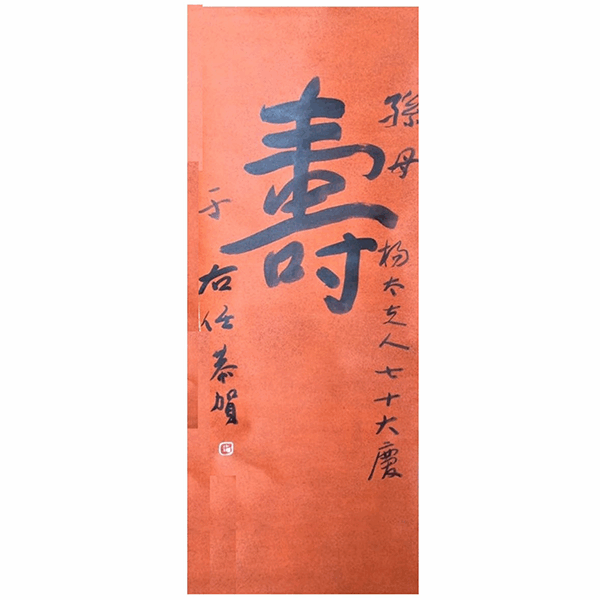 孫母杨太夫人七十大慶
壽
于右任恭賀